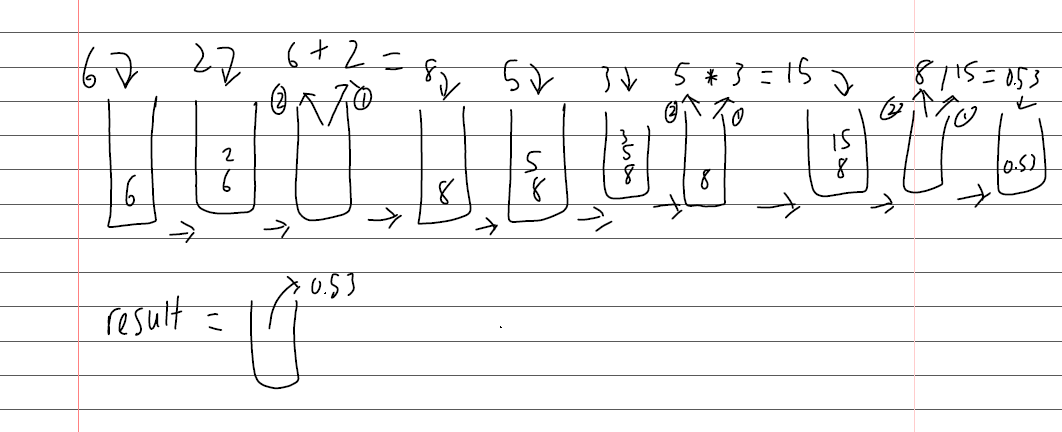 6 2 6 + 2 = 8 5 3 5 * 3 = 15 8 / 15 = 0.53
② ① ② ① ② ①
6 2 6 8 5 8 3 5 8 8 15 8 0.53
result = 0.53